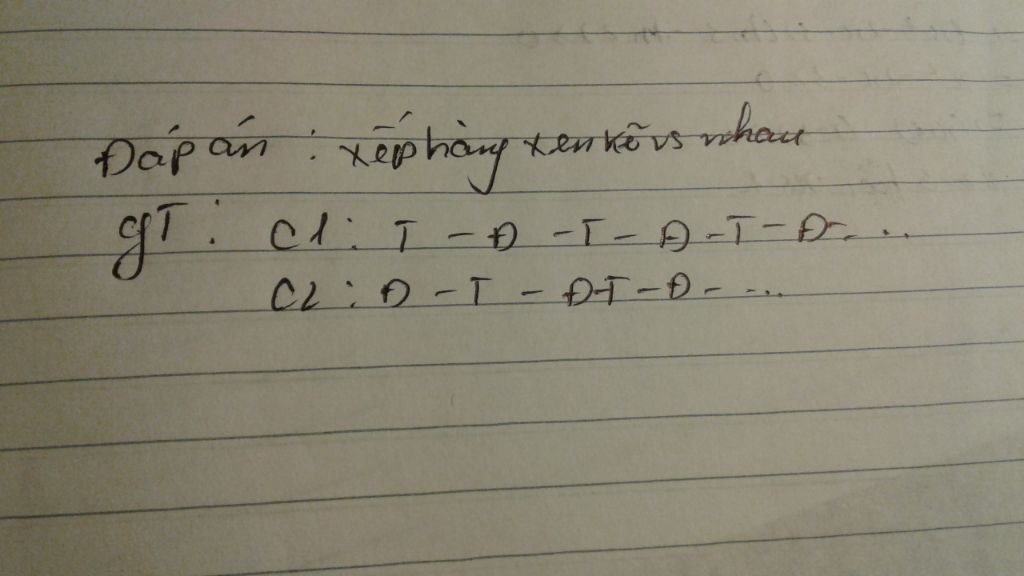 Đáp án : xếp hàng xen kẽ vs nhau
gT : C1 : T - Đ - T - Đ - T - Đ - ...
C2 : Đ - T - Đ - T - Đ - ...